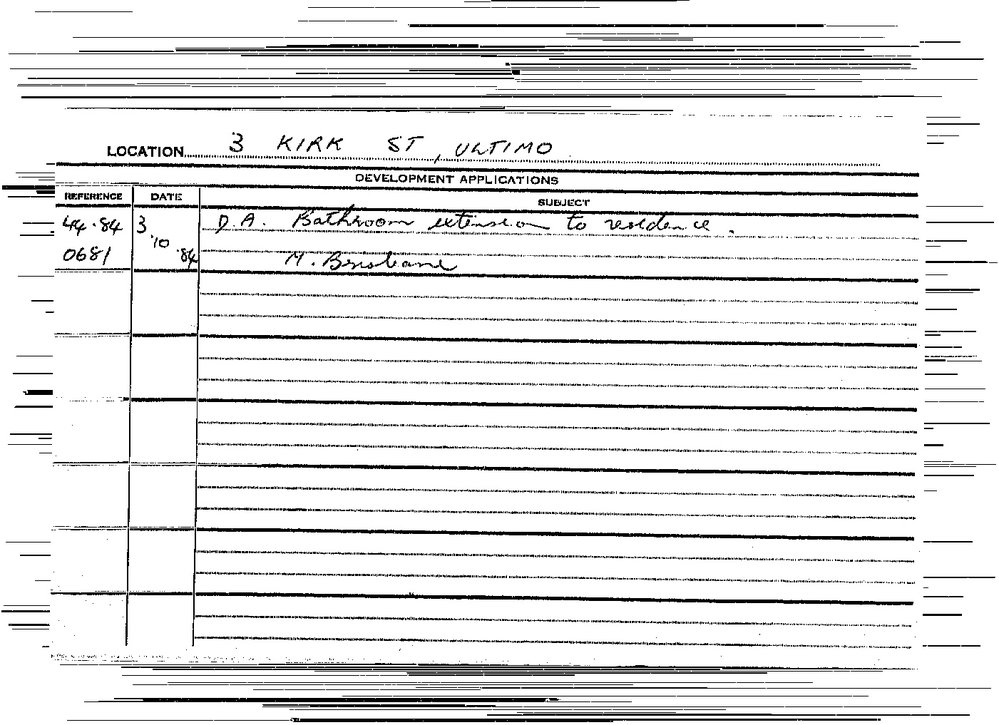 LOCATION 3 KIRK ST, ULTIMO
DEVELOPMENT APPLICATIONS
REFERENCE DATE SUBJECT
44.84 3 D.A. Bathroom extension to residence.
0681 10 .84 M. Brisbane